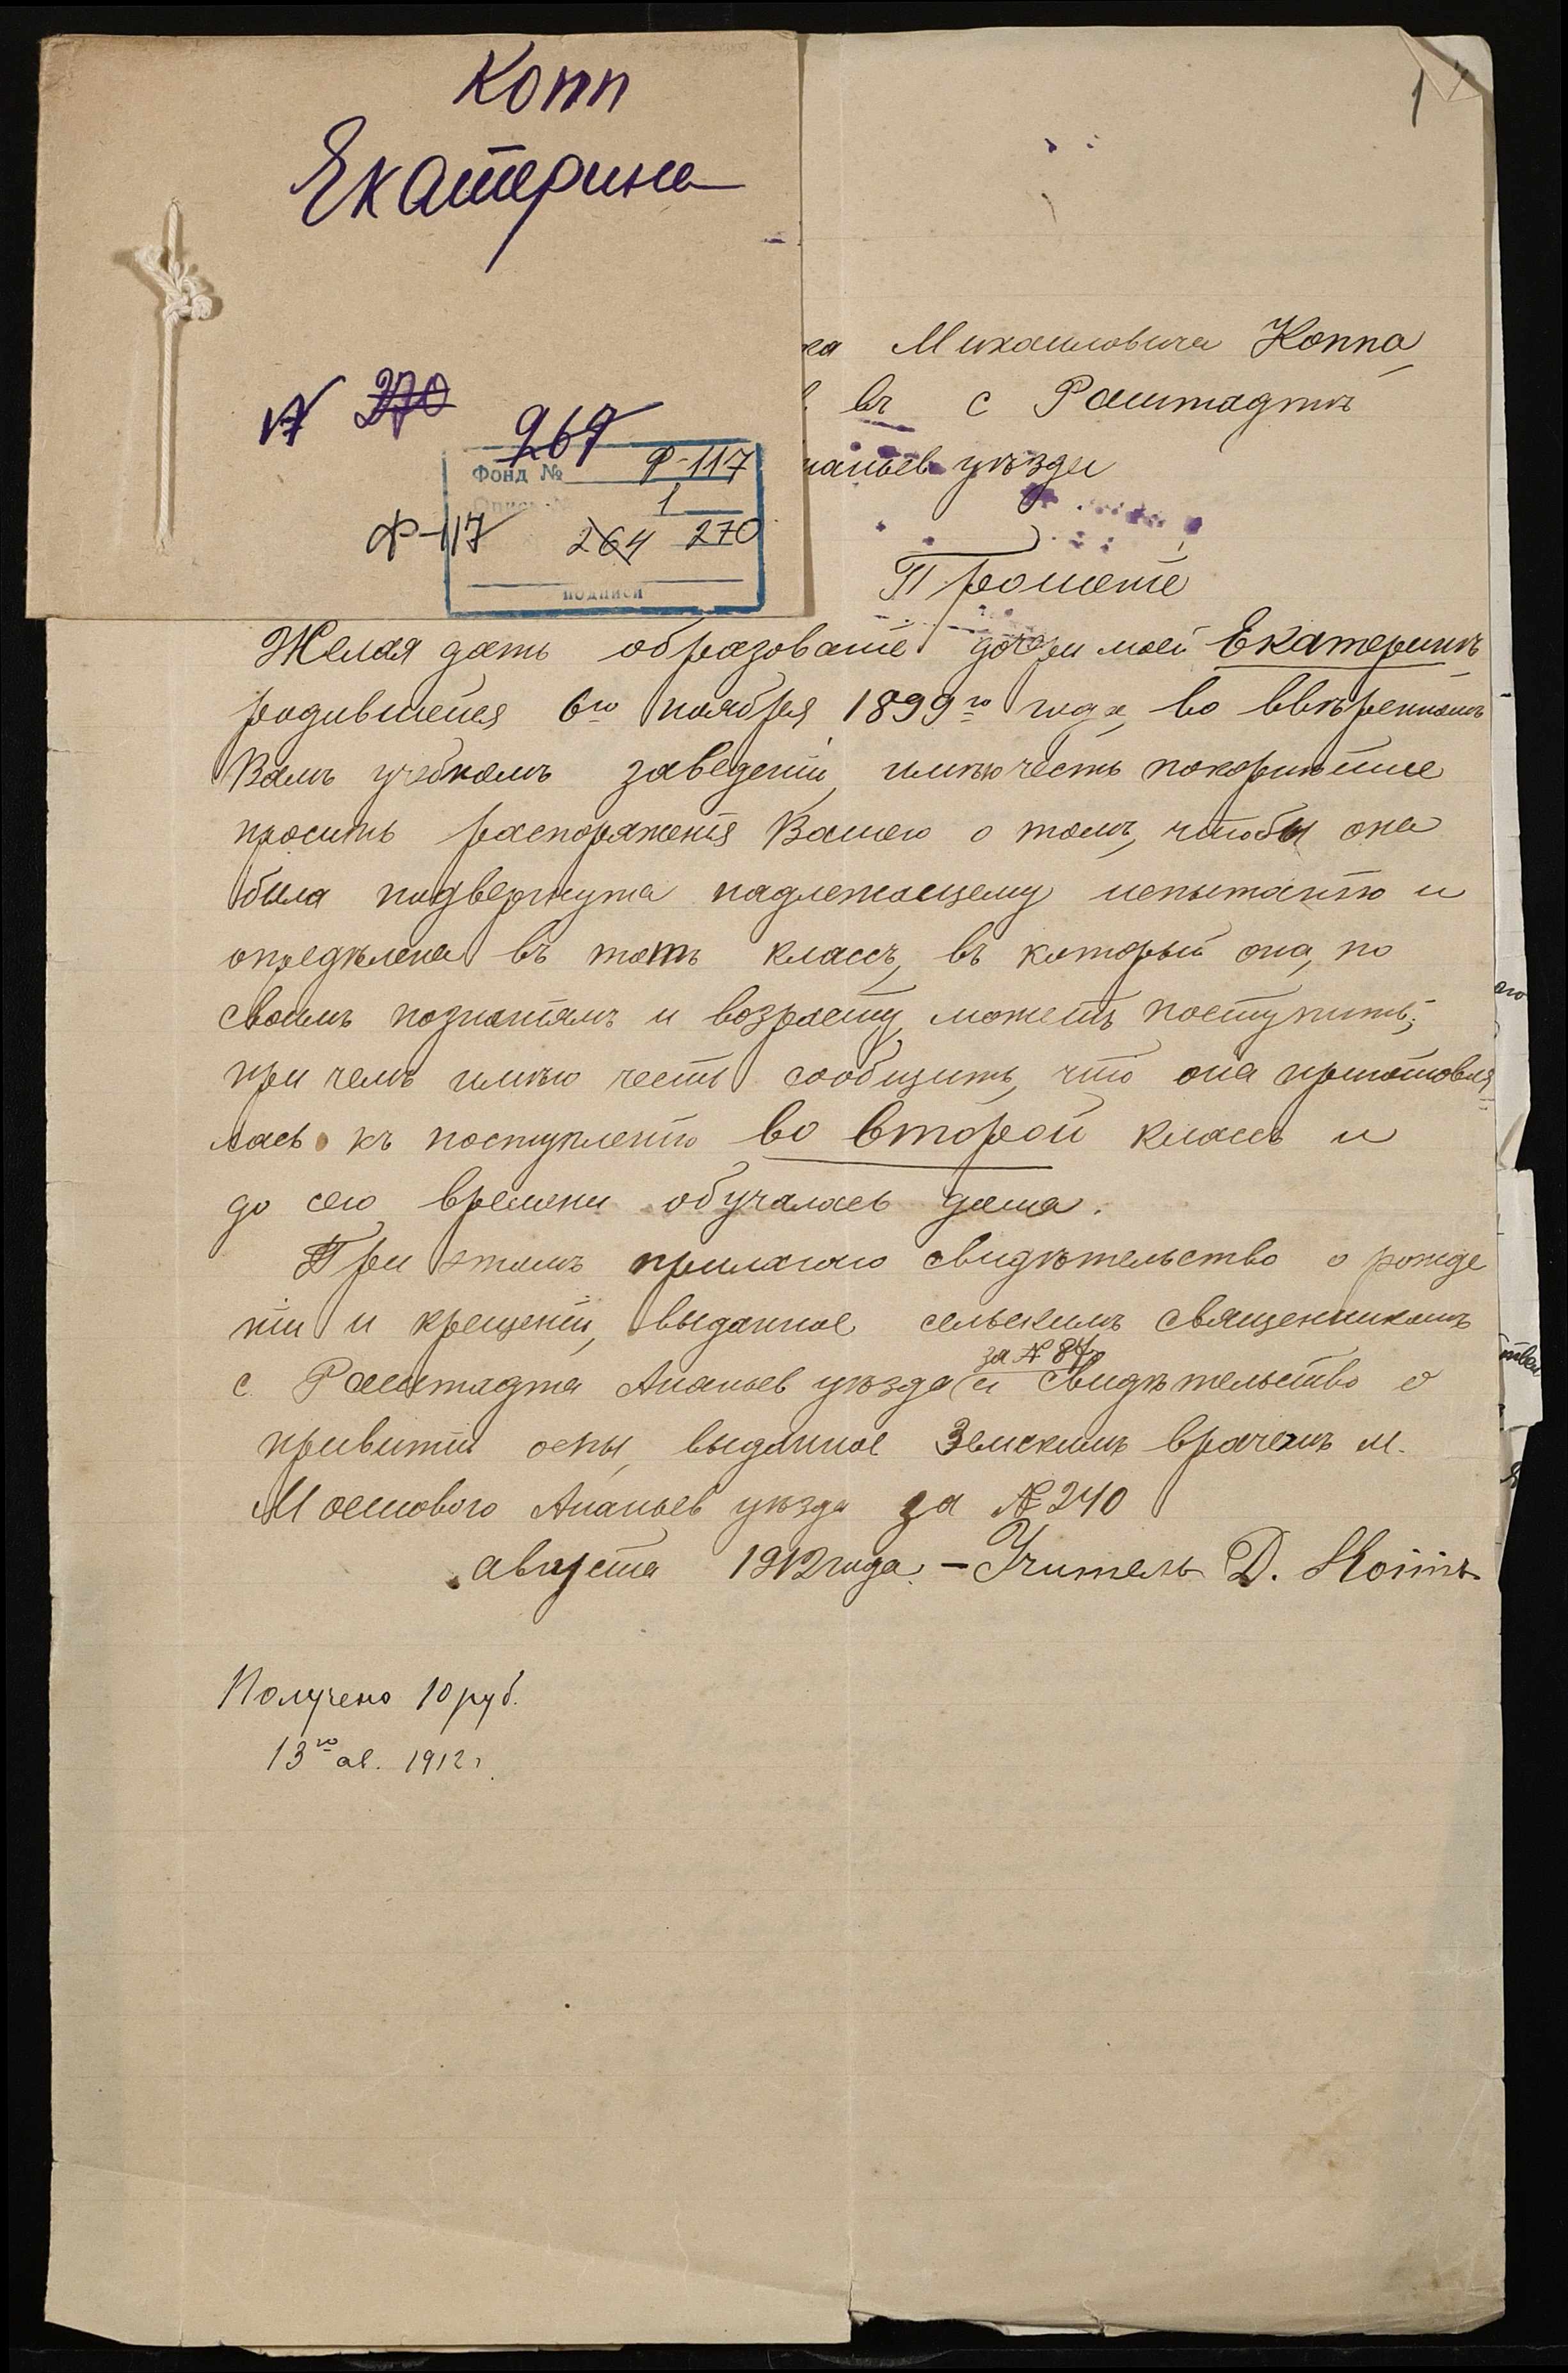 Копп
Екатерина
№ 270
267
Фонд № Ф-117
Опись № 1
Ф-117 264 270
подписи
1
ка Михаиловича Коппа
въ с Раштадтѣ
наньев уѣзда
Прошеніе
Желая дать образованіе дочери моей Екатеринѣ
родившейся 6го ноября 1899го года, во ввѣренномъ
Вамъ учебномъ заведеніи, имѣю честь покорнѣйше
просить распоряженія Вашего о томъ, чтобы она
была подвергнута надлежащему испытанію и
опредѣлена въ тотъ классъ, въ который она, по
своимъ познаніямъ и возрасту, можетъ поступить;
при чемъ имѣю честь сообщить, что она приготовля
лась къ поступленію во второй классъ и
до сего времени обучалась дома.
При этомъ прилагаю свидѣтельство о рожде
ніи и крещеніи, выданное сельскимъ священникомъ
за № 87,
с. Раштадта Ананьев уѣзда и свидѣтельство о
привитіи оспы, выданное Земскимъ врачемъ м.
Мостового Ананьев уѣзда за № 240
августа 1912 года. – Учитель Д. Коппъ
Получено 10 руб.
13го ав. 1912 г.